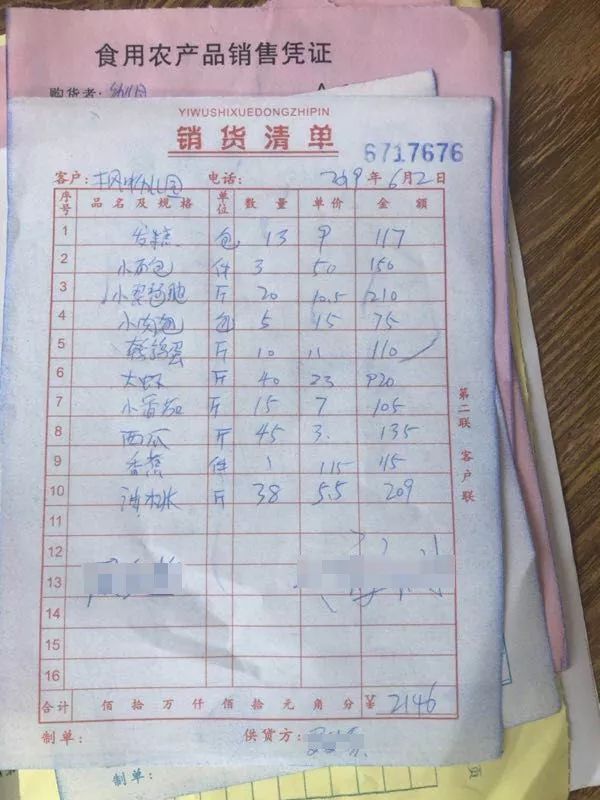 食用农产品销售凭证
购货者:
YIWUSHIXUEDONGZHIPIN
销货清单
6717676
客户: 电话: 2019年6月2日
序号 品名及规格 单位 数量 单价 金额
1 发糕 包 13 9 117
2 小面包 件 3 50 150
3 小蛋糕 斤 20 10.5 210
4 小肉包 包 5 15 75
5 鹌鹑蛋 斤 10 11 110
6 大虾 斤 40 23 920
7 小番茄 斤 15 7 105
8 西瓜 斤 45 3. 135
9 香蕉 件 1 115 115
10 油桃 斤 38 5.5 209
11
12
13
14
15
16
合计 佰拾万仟佰拾元角分 ¥ 2146
制单: 供货方:
第二联 客户联
制单:
页